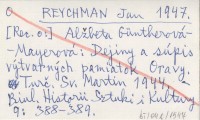 O REYCHMAN Jan 1947.
[Rec. o:] Alžbeta Güntherová-
Mayerová: Dejiny a súpis
výtvarných pamiatok Oravy.
Turč. Sv. Martin 1944.
Biul. Historii Sztuki i Kultury
9: 388-389.